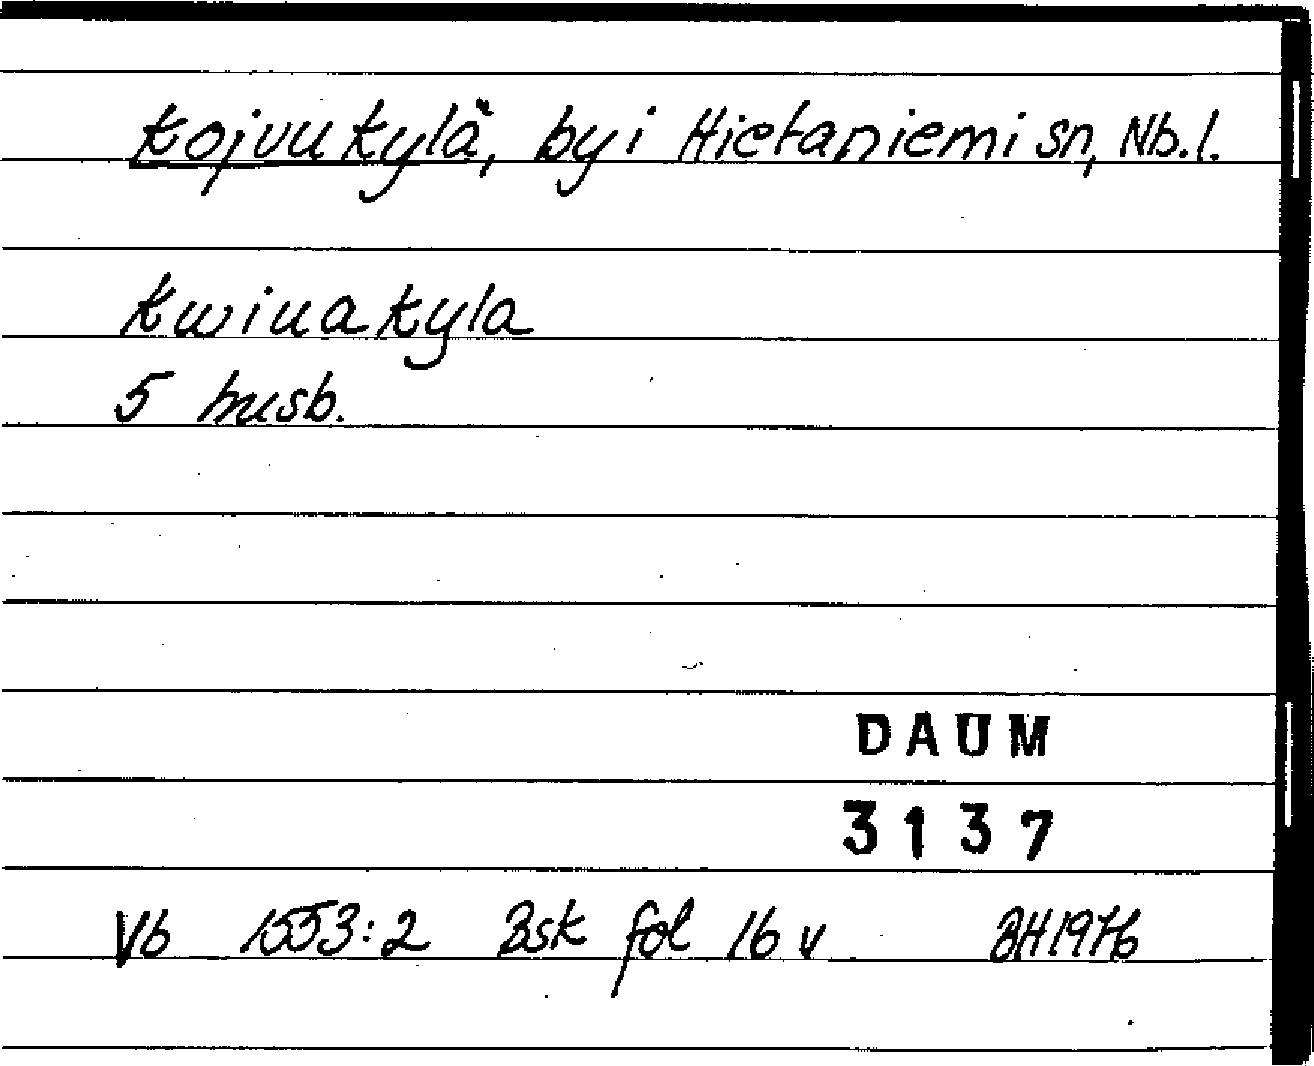 Kojvukylä, by i Hietaniemi sn, Nb.l.
Kwiuakyla
5 husb.
DAUM
3137
Vb 1553:2 Bsk fol 16 v BH1976